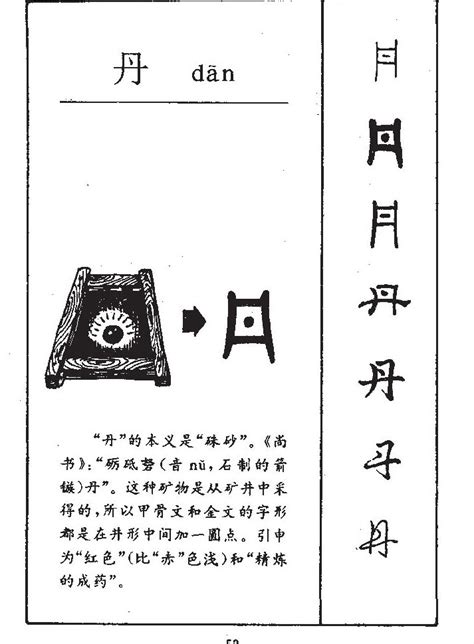 丹 dān
“丹”的本义是“硃砂”。《尚
书》：“砺砥砮（音 nǔ，石制的箭
镞）丹”。这种矿物是从矿井中采
得的，所以甲骨文和金文的字形
都是在井形中间加一圆点。引申
为“红色”（比“赤”色浅）和“精炼
的成药”。
丹
丹